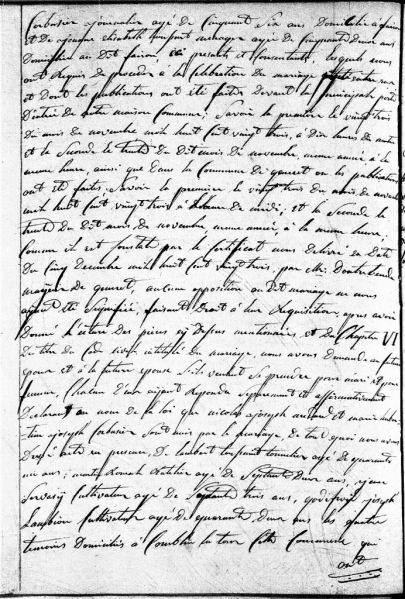 Corbusier ajournalier agé de Cinquant Six ans Domicilié à
et De ajeanne elisabeth toussaint menager agé de Cinquant deux ans
Domicilier au Dit faïron, ici presents et Consentants, lesquels nous
ont Requis de proceder à la Celebration du mariage
et Dont les publications ont été faites Devant la principale porte
D'entrée de notre maison Commune; Savoir la premiere le vingt trois
Du mois de novembre mil huit Cent vingt trois, à dix heures du matin
et la Seconde le trente du dit mois de novembre, meme année à la
meme heure, ainsi que Dans la Commune de où les publications
ont été faites, Savoir la premiere le vingt trois du mois de novembre
mil huit Cent vingt trois à de midi, et la Seconde le
trente Du Dit mois de novembre, meme année, à la meme heure,
Comme il est Constaté par le Certificat nous delivré en Date
Du Cinq Decembre mil huit Cent vingt trois, par Mr.
mayeur de aucune opposition au Dit mariage ne nous
ayant été Signifiée, faisant Droit à leur Requisition, apres avoir
Donné Lecture des pieces cy Dessus mentionnées, et du Chapitre VI
Du titre du Code Civil intitulé du mariage, nous avons Demandé au futur
epoux et à la future epouse S'ils veulent Se prendre pour mari et pour
femme, Chacun D'eux ayant Repondu Separement et affirmativement
Declarons au nom de la loi que nicolas ajoseph et marie
ajoseph Corbusier Sont unis par le mariage, De tout quoi nous avons
Dressé acte en presence, De lambert toussaint agé de quarante
un ans; agé de Septante deux ans,
Servais Cultivateur agé de Septante trois ans, godefroid joseph
Cultivateur agé de quarante deux ans les quatre
temoins Domiciliés à Comblain la tour Cette Commune qui
ont